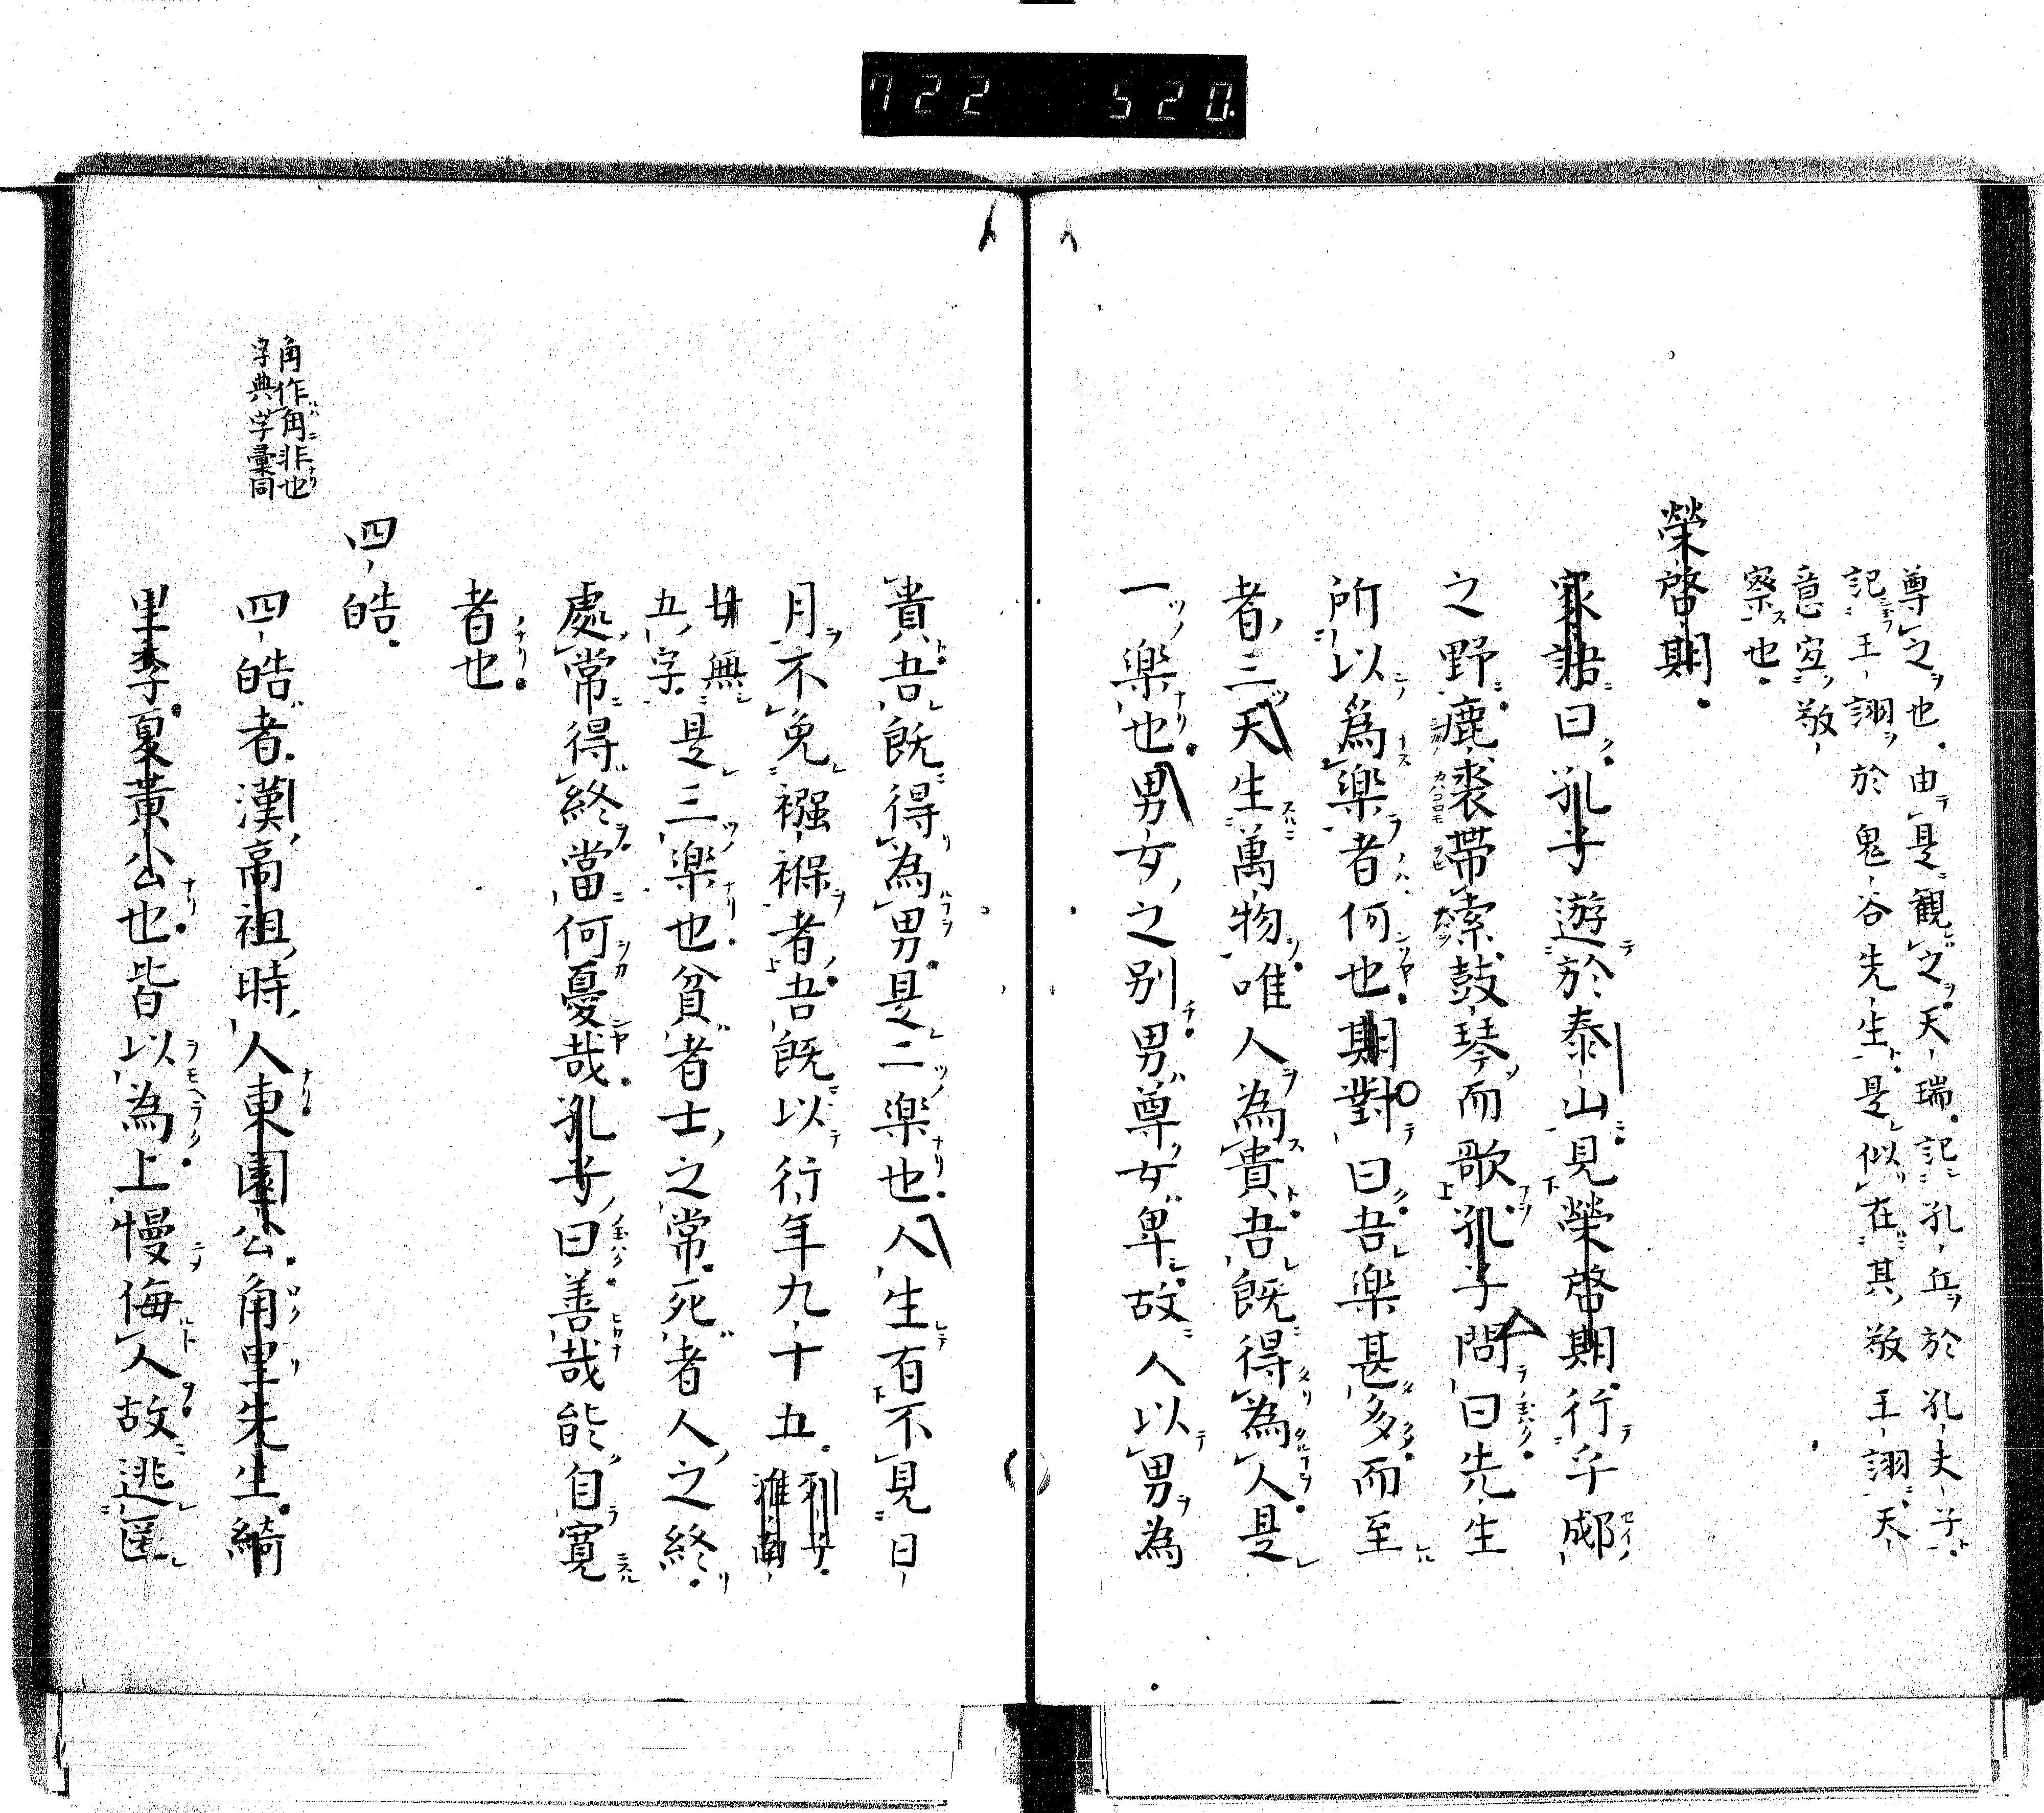 722 520.
尊之也由是観之天瑞記孔丘於孔夫子
記王詡於鬼谷先生是似在其敬王詡天
意宜敬
察也
榮啓期
家語曰孔子遊於泰山見榮啓期行乎郕
之野鹿裘帶索鼓琴而歌孔子問曰先生
所以爲樂者何也期對曰吾楽甚多而至
者三天生萬物唯人為貴吾既得為人是
一楽也男女之別男尊女卑故人以男為
貴吾既得為男是二楽也人生有不見日
月不免襁褓者吾既以行年九十五列子淮南
毋無五字是三楽也貧者士之常死者人之終
處常得終當何憂哉孔子曰善哉能自寛
者也
四皓
角作角非也
字典字彙同
四皓者漢高祖時人東園公角里先生綺
里季夏黄公也皆以為上慢侮人故逃匿